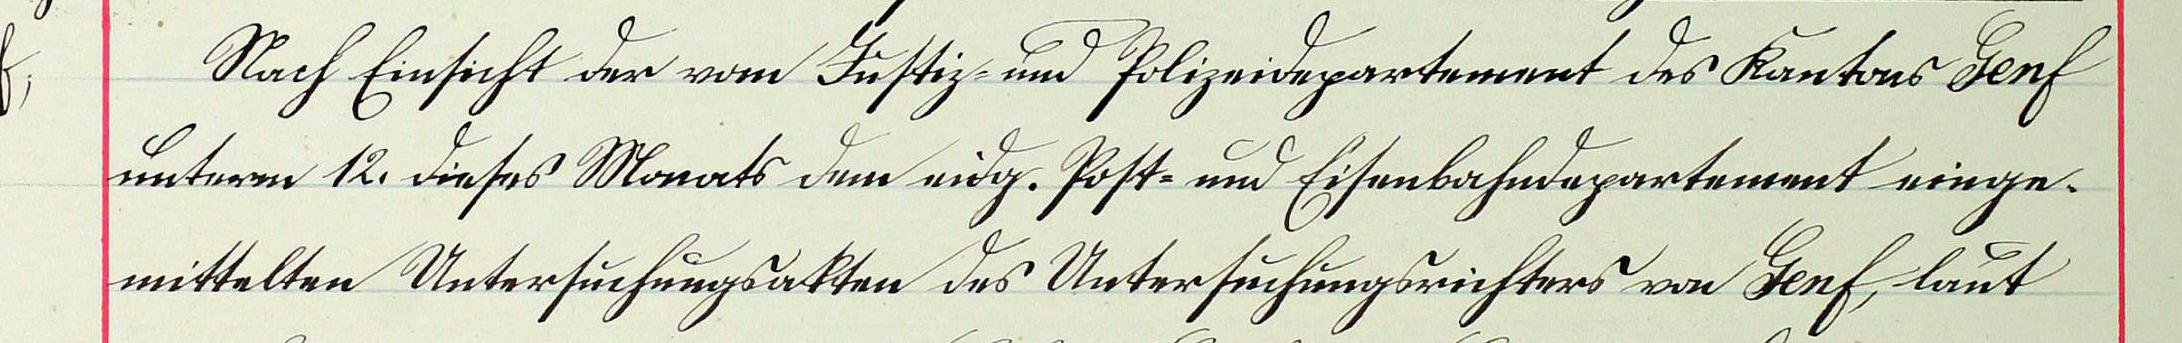 Nach Einsicht der vom Justiz- und Polizeidepartement des Kantons Genf
unterm 12. dieses Monats dem eidg. Post- und Eisenbahndepartement einge-
mittelten Untersuchungsakten des Untersuchungsrichters von Genf, laut